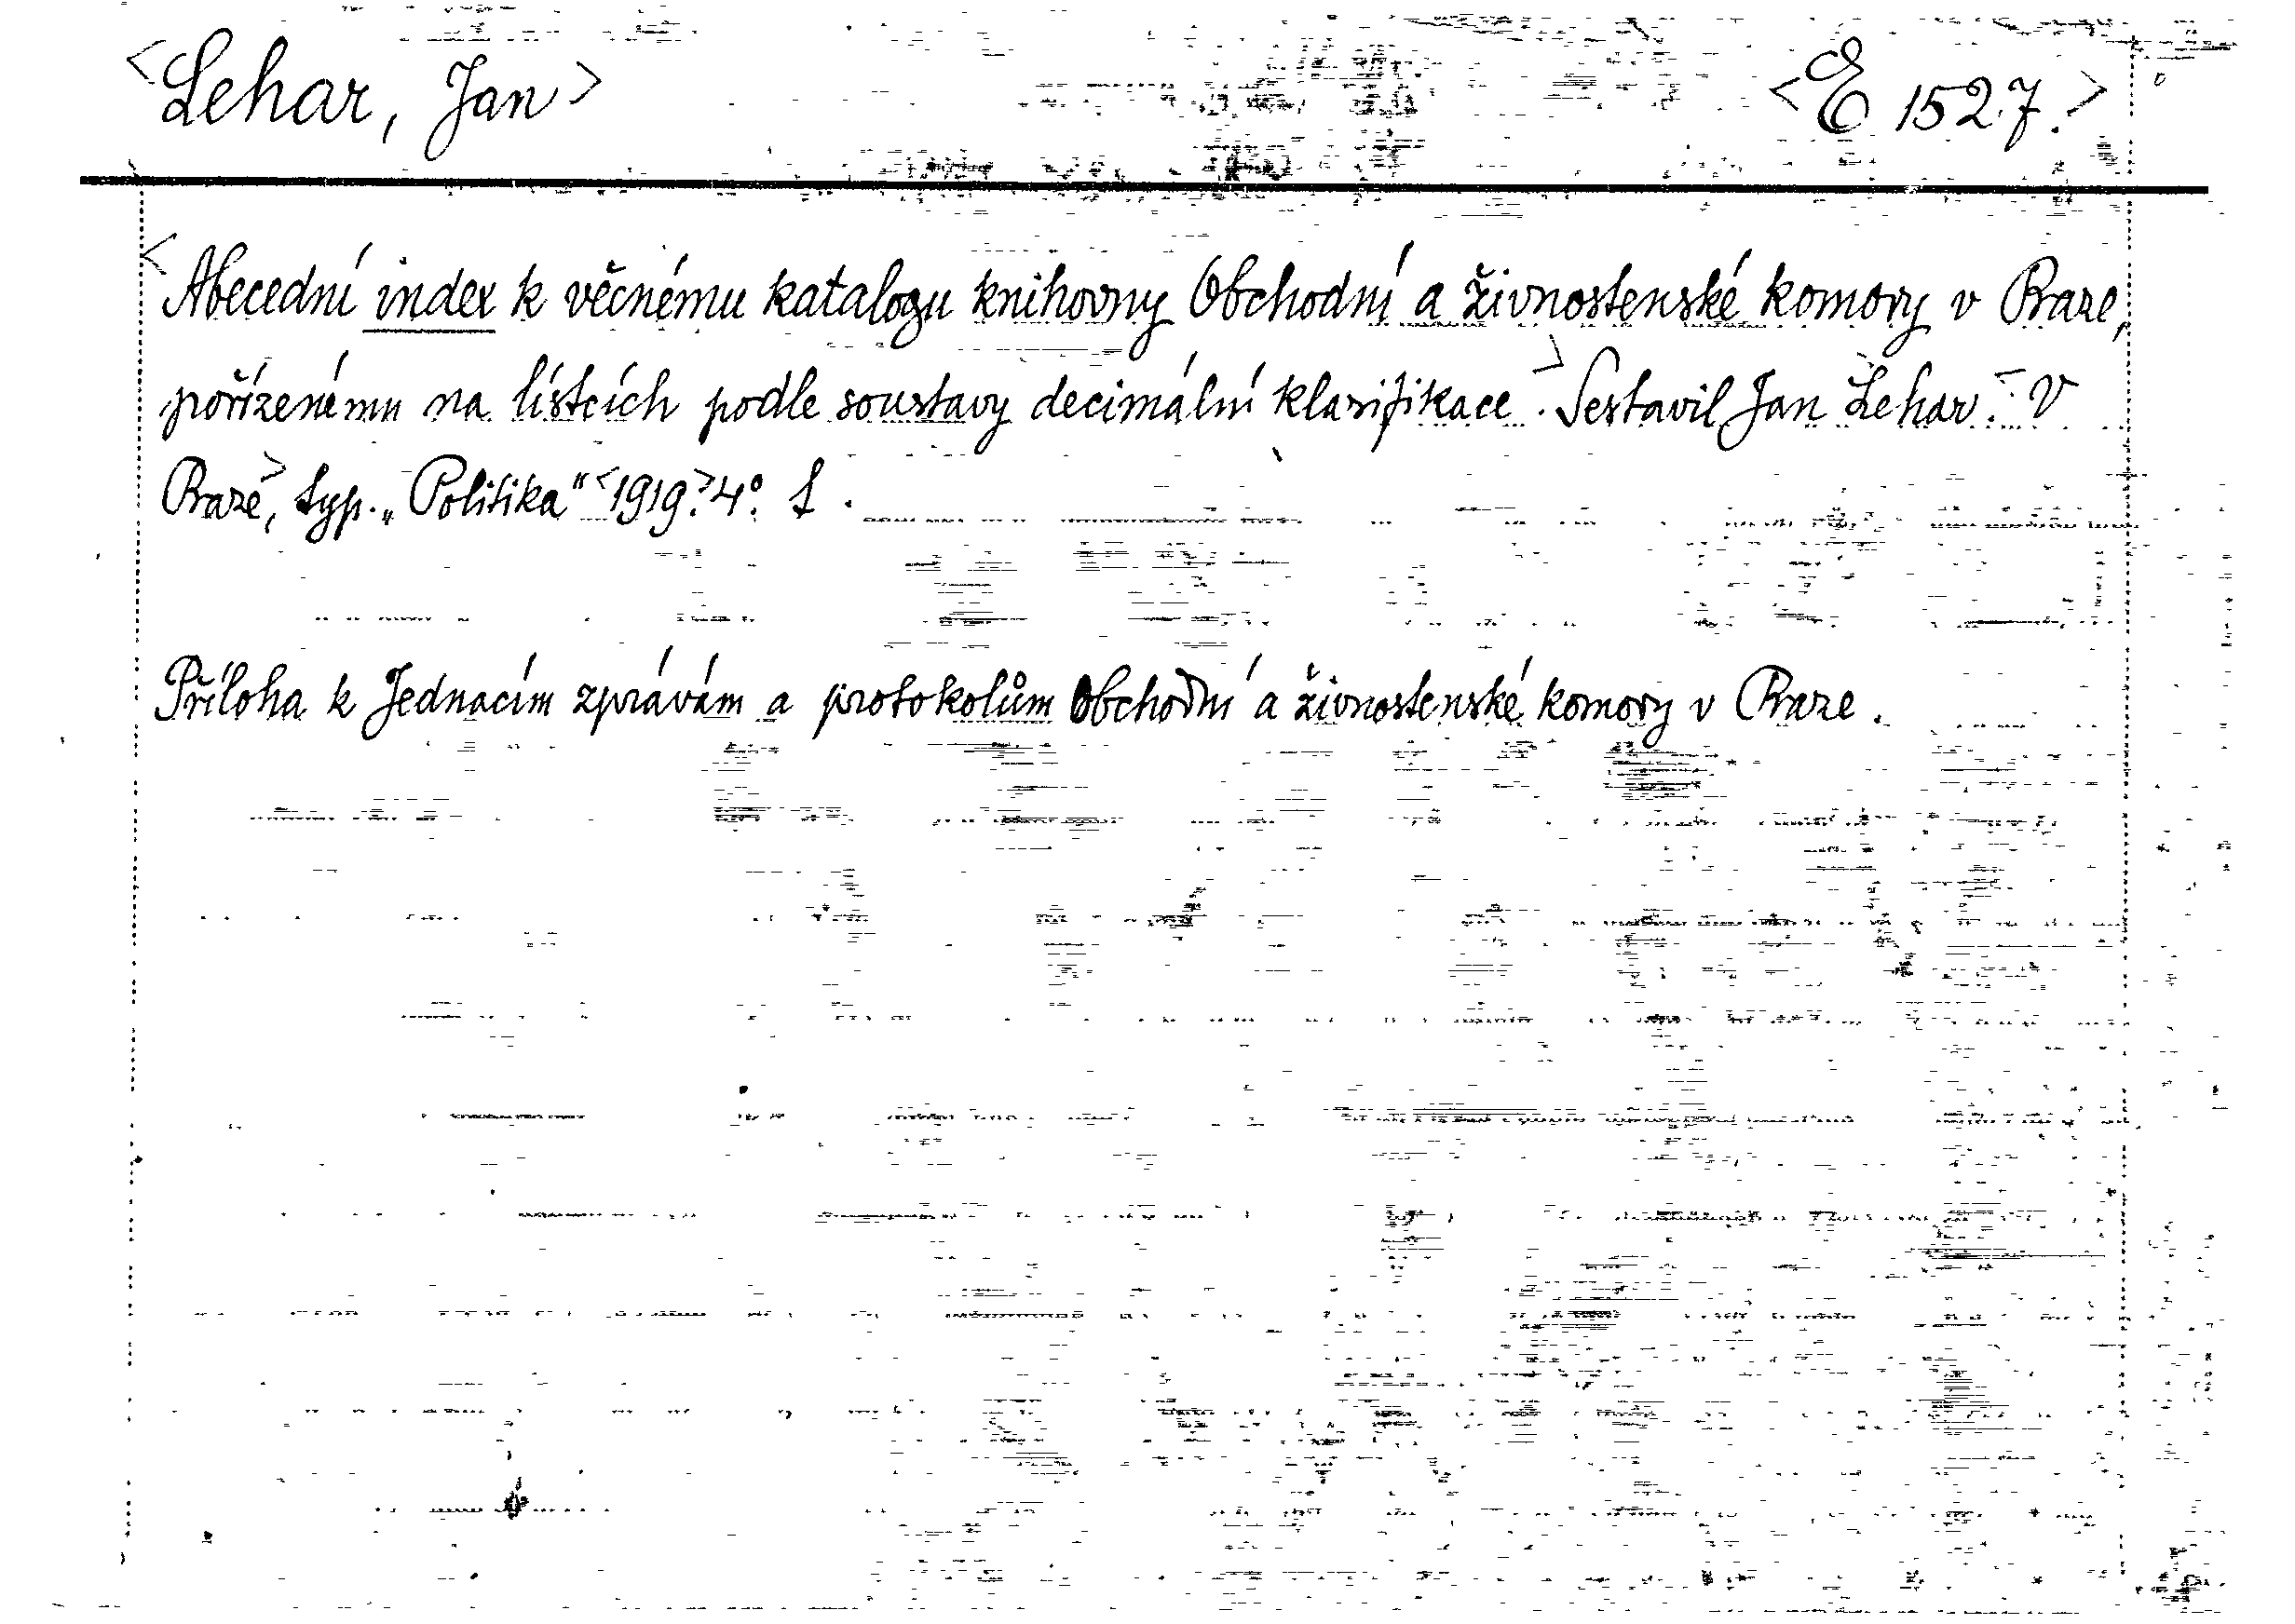 <Lehar, Jan> <E 1527.>
<Abecední index k věcnému katalogu knihovny Obchodní a živnostenské komory v Praze,
pořízenému na lístcích podle soustavy decimální klasifikace.> Sestavil Jan Lehar. V
Praze>, typ. „Politika" <1919.> 4°.
Příloha k Jednacím zprávám a protokolům Obchodní a živnostenské komory v Praze.